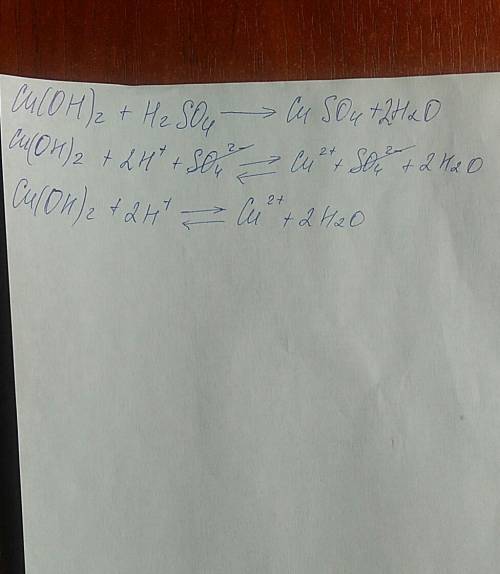 Cu(OH)₂ + H₂SO₄ ⟶ CuSO₄ + 2H₂O
Cu(OH)₂ + 2H⁺ + SO₄²⁻ ⇄ Cu²⁺ + SO₄²⁻ + 2H₂O
Cu(OH)₂ + 2H⁺ ⇄ Cu²⁺ + 2H₂O